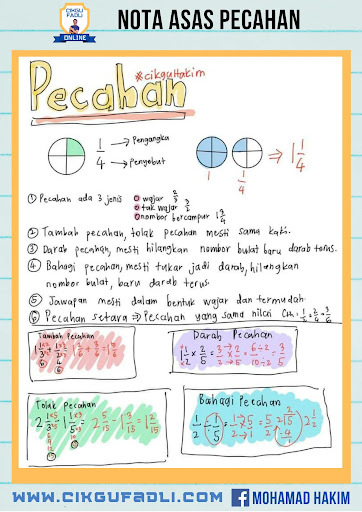 CIKGU
FADLI
ONLINE
NOTA ASAS PECAHAN
#cikguHakim
Pecahan
1/4 → Pengangka
→ Penyebut
1
1/4
⇒ 1 1/4
① Pecahan ada 3 jenis
wajar 2/3
tak wajar 3/2
nombor bercampur
② Tambah pecahan, tolak pecahan mesti sama kati.
③ Darab pecahan, mesti hilangkan nombor bulat baru darab terus.
④ Bahagi pecahan, mesti tukar jadi darab, hilangkan
nombor bulat, baru darab terus.
⑤ Jawapan mesti dalam bentuk wajar dan termudah.
⑥ Pecahan setara ⇒ Pecahan yang sama nilai Cth: 1/2 = 2/4 = 3/6
Tambah Pecahan
Darab Pecahan
1 1/2 × 2/5 = 3/2 × 2/5 = 6÷2/10÷2 = 3/5
Tolak Pecahan
Bahagi Pecahan
WWW.CIKGUFADLI.COM
MOHAMAD HAKIM